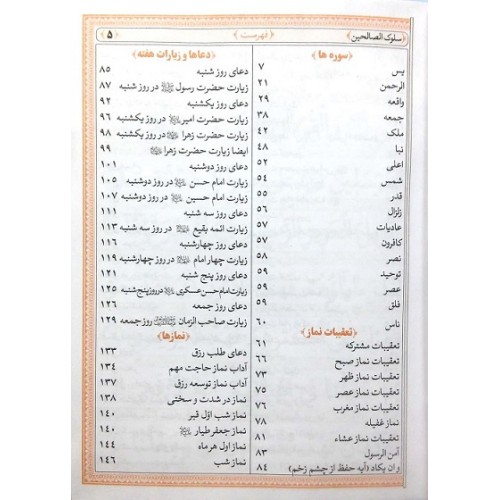 سلوک الصالحین
فهرست
۵
سوره ها
یس ۷
الرحمن ۲۱
واقعه ۲۹
جمعه ۳۸
ملک ۴۲
نبا ۴۸
اعلی ۵۲
شمس ۵۴
قدر ۵۵
زلزال ۵۶
عادیات ۵۷
کافرون ۵۷
نصر ۵۸
توحید ۵۹
عصر ۵۹
فلق ۵۹
ناس ۶۰
تعقیبات نماز
تعقیبات مشترکه ۶۱
تعقیبات نماز صبح ۶۶
تعقیبات نماز ظهر ۷۳
تعقیبات نماز عصر ۷۵
تعقیبات نماز مغرب ۷۶
نماز غفیله ۷۸
تعقیبات نماز عشاء ۸۱
آمن الرسول ۸۳
و ان یکاد (آیه حفظ از چشم زخم) ۸۴
دعاها و زیارات هفته
دعای روز شنبه ۸۵
زیارت حضرت رسول ﷺ در روز شنبه ۸۷
دعای روز یکشنبه ۹۲
زیارت حضرت امیر در روز یکشنبه ۹۶
زیارت حضرت زهرا در روز یکشنبه ۹۸
ایضا زیارت حضرت زهرا ۹۹
دعای روز دوشنبه ۱۰۱
زیارت امام حسن در روز دوشنبه ۱۰۵
زیارت امام حسین در روز دوشنبه ۱۰۷
دعای روز سه شنبه ۱۱۱
زیارت ائمه بقیع در روز سه شنبه ۱۱۳
دعای روز چهارشنبه ۱۱۶
زیارت چهار امام در روز چهارشنبه ۱۱۹
دعای روز پنج شنبه ۱۲۱
زیارت امام حسن عسکری در روز پنج شنبه ۱۲۵
دعای روز جمعه ۱۲۶
زیارت صاحب الزمان روز جمعه ۱۲۹
نمازها
دعای طلب رزق ۱۳۳
آداب نماز حاجت مهم ۱۳۴
آداب نماز توسعه رزق ۱۳۷
نماز در شدت و سختی ۱۳۸
نماز شب اوّل قبر ۱۴۰
نماز جعفر طیار ۱۴۰
نماز اول هر ماه ۱۴۴
نماز شب ۱۴۶